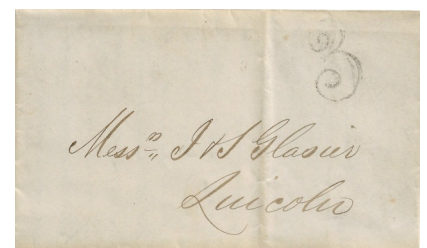 3
Messrs J & S Glasier
Lincoln